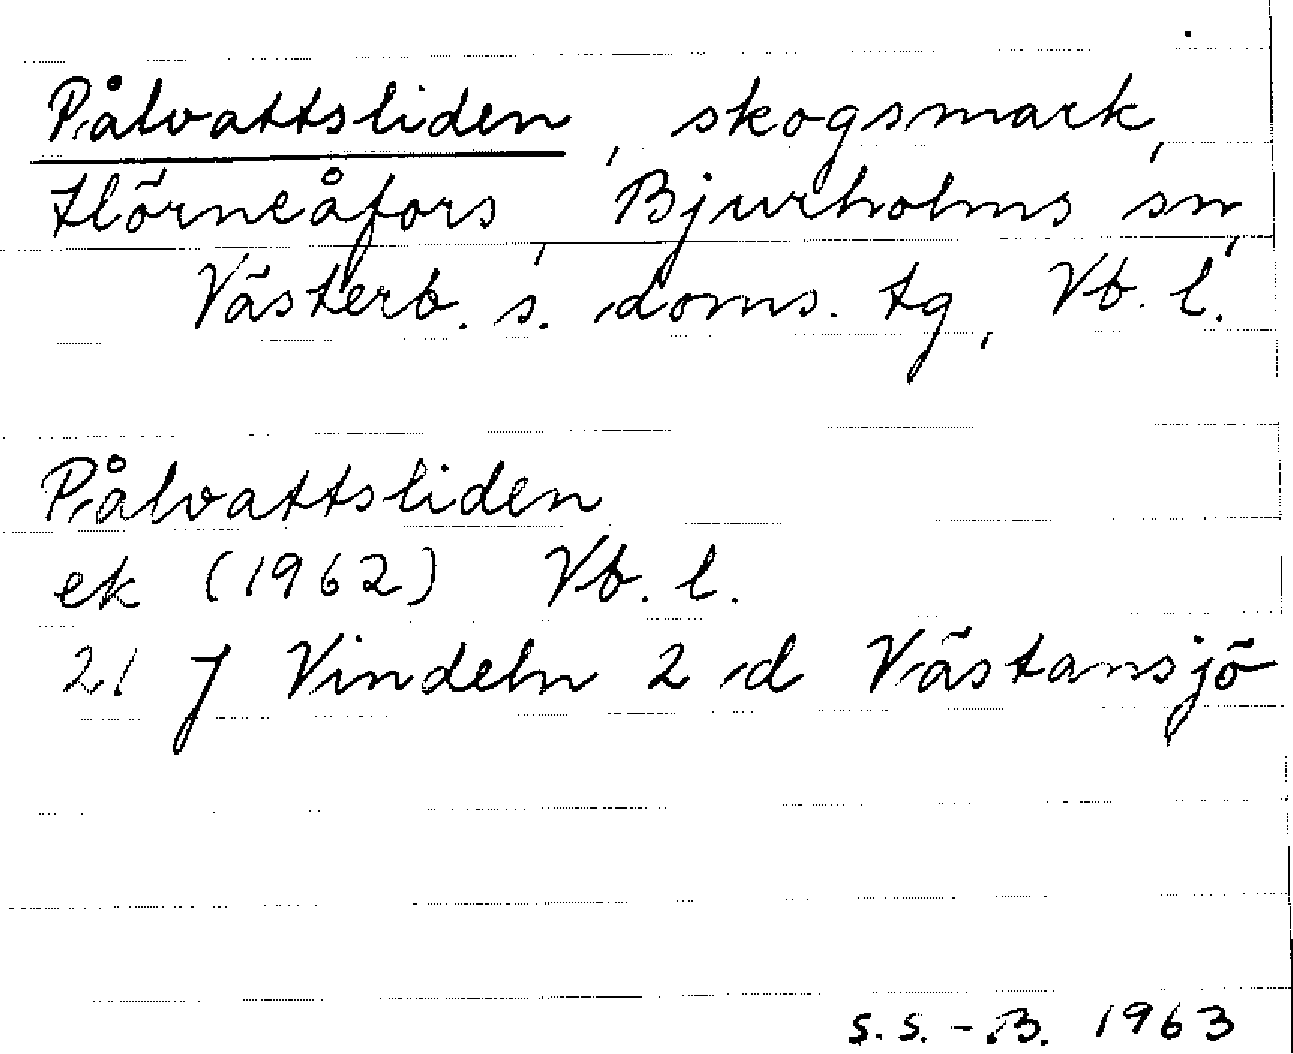 Pålvattsliden, skogsmark,
Hörneåfors, Bjurholms sn,
Västerb. s. doms. tg, Vb. l.
Pålvattsliden
ek (1962) Vb. l.
21 J Vindeln 2 d Västansjö
S.S.-B. 1963